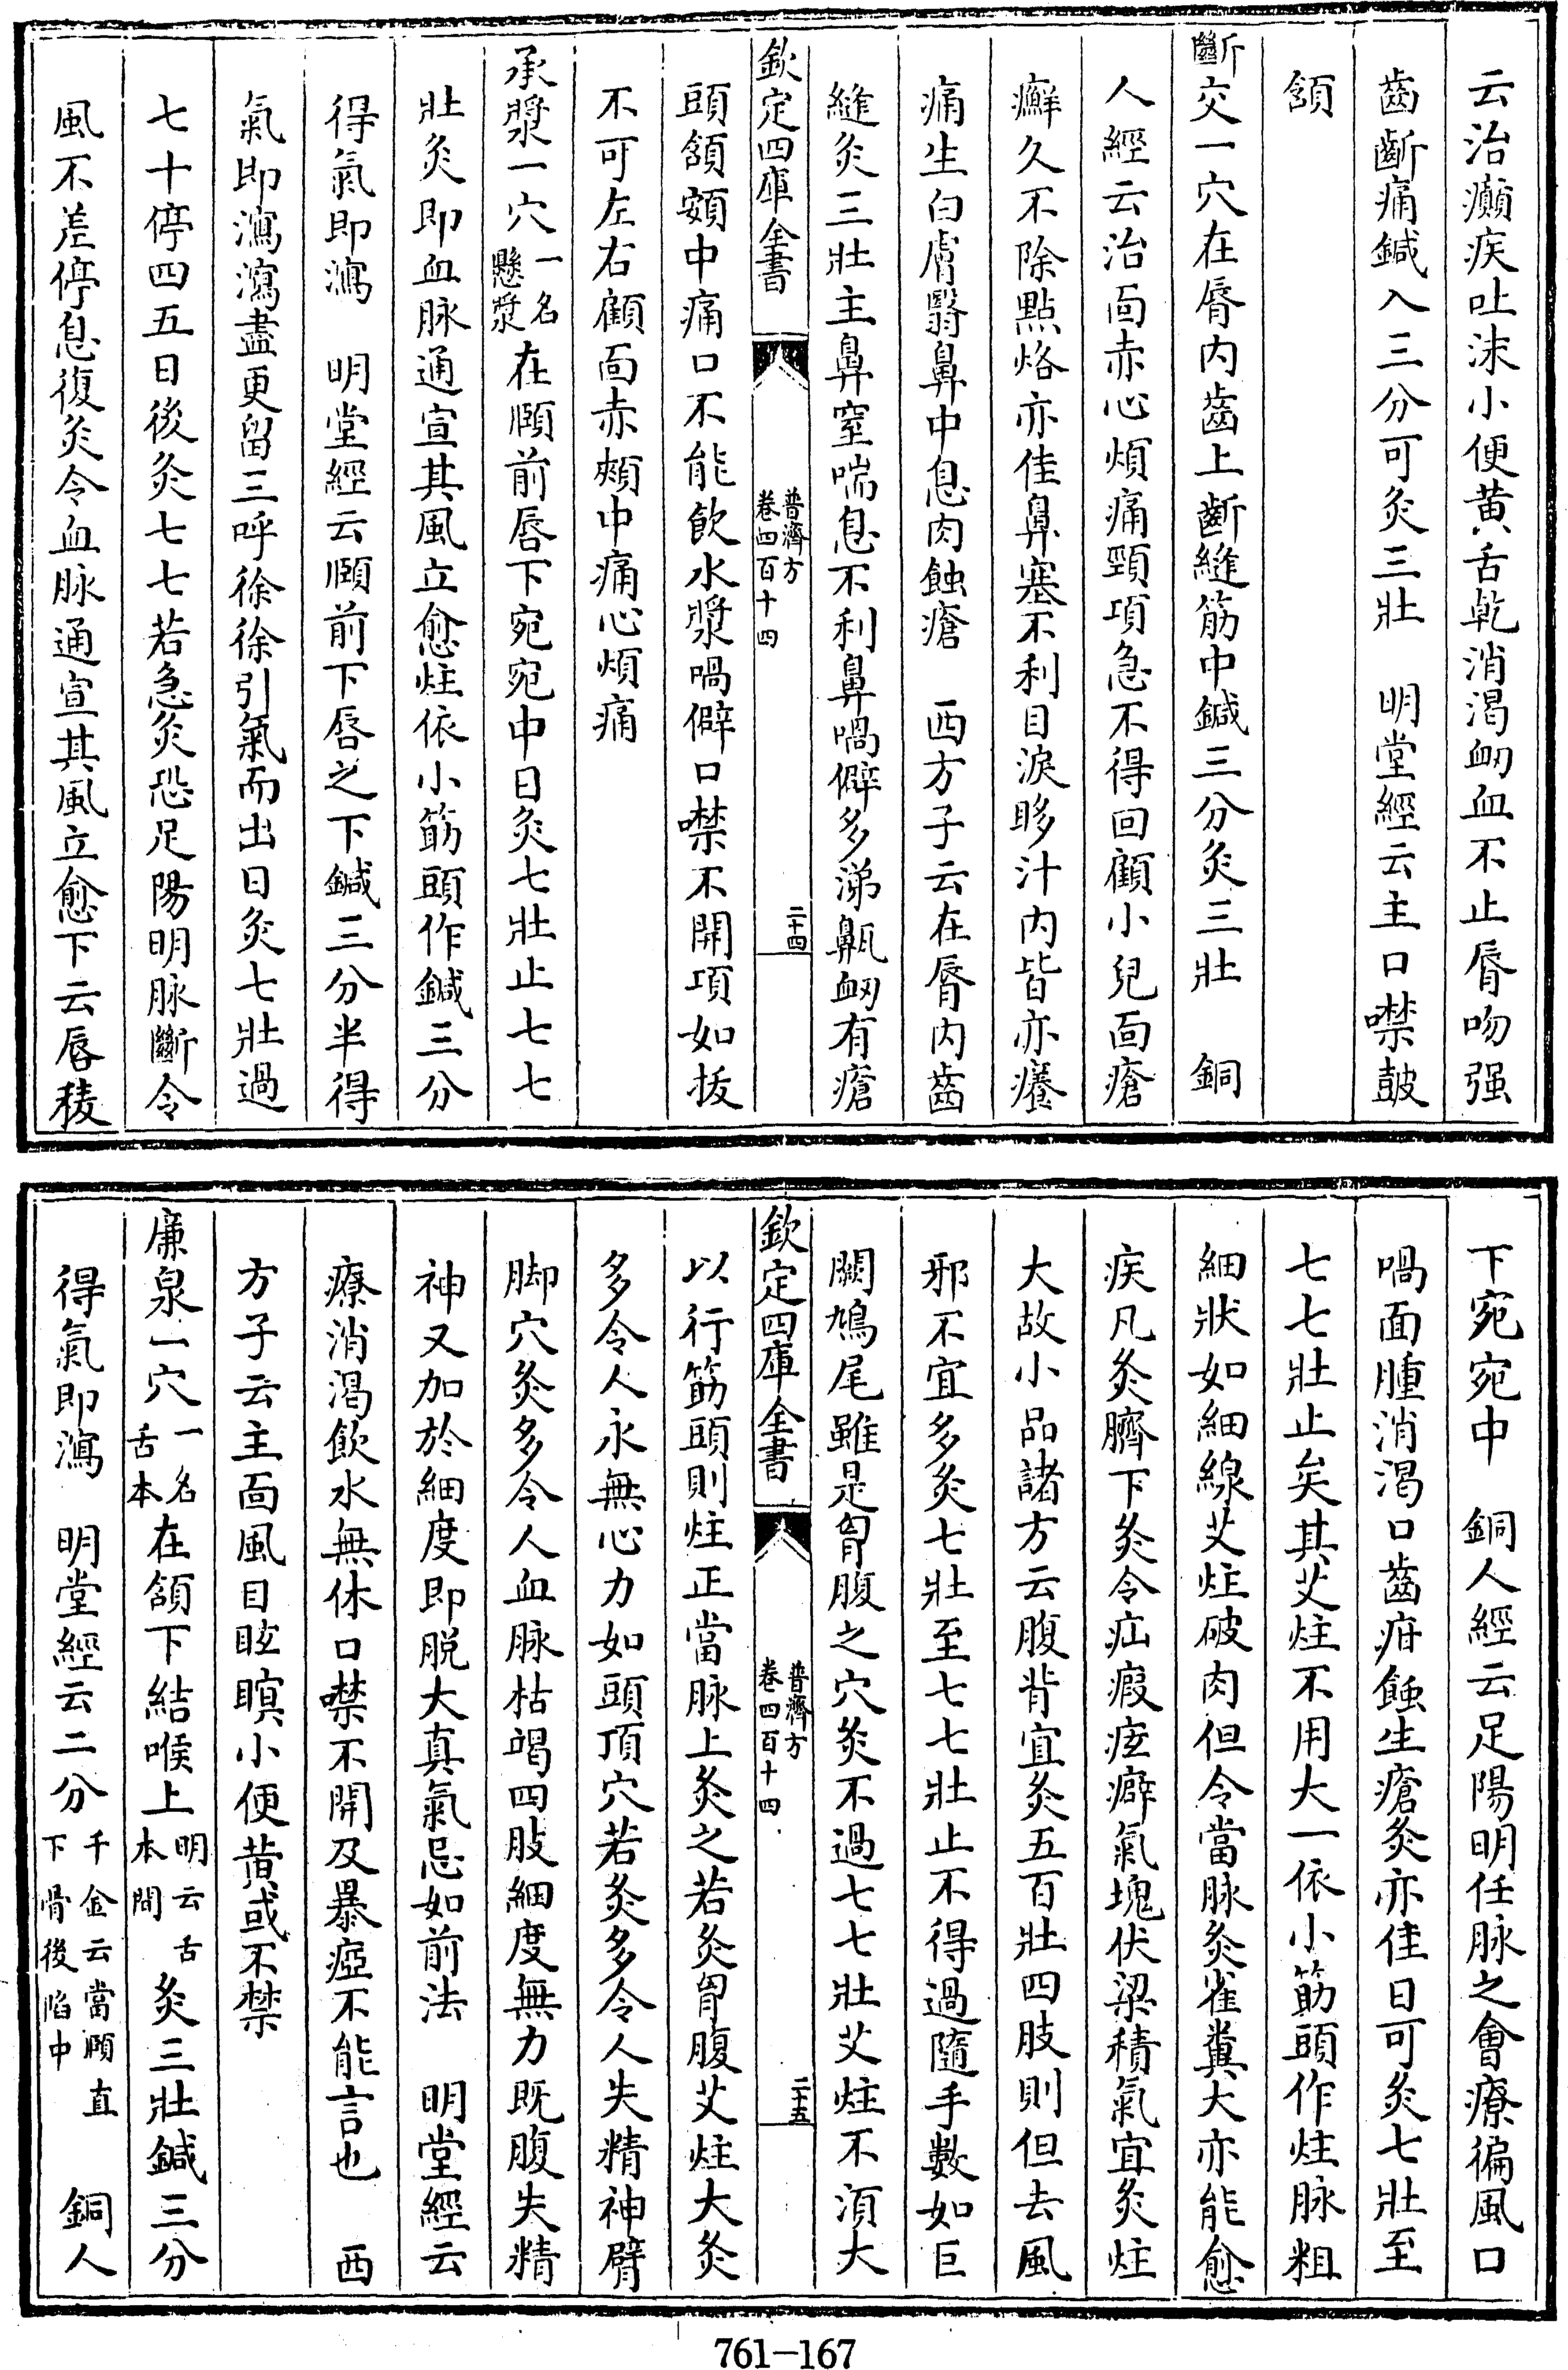 云治癲疾吐沫小便黄舌乾消渴衂血不止脣吻强
齒齗痛鍼入三分可灸三壯　明堂經云主口噤鼓
頷
齗交一穴在脣内齒上齗縫筋中鍼三分灸三壯　銅
人經云治面赤心煩痛頸項急不得回顧小兒面瘡
癬久不除點烙亦佳鼻塞不利目淚眵汁内眥亦癢
痛生白膚翳鼻中息肉蝕瘡　西方子云在脣内齒
縫灸三壯主鼻窒喘息不利鼻喎僻多涕鼽衂有瘡
欽定四庫全書
普濟方
卷四百十四
二十四
頭頷頞中痛口不能飲水漿喎僻口噤不開項如拔
不可左右顧面赤頰中痛心煩痛
承漿一穴一名懸漿在頤前唇下宛宛中日灸七壯止七七
壯灸即血脉通宣其風立愈炷依小筯頭作鍼三分
得氣即瀉　明堂經云頤前下唇之下鍼三分半得
氣即瀉瀉盡更留三呼徐徐引氣而出日灸七壯過
七十停四五日後灸七七若急灸恐足陽明脉斷令
風不差停息復灸令血脉通宣其風立愈下云唇稜
下宛宛中　銅人經云足陽明任脉之會療徧風口
喎面腫消渴口齒疳蝕生瘡灸亦佳日可灸七壯至
七七壯止矣其艾炷不用大一依小筯頭作炷脉粗
細狀如細線艾炷破肉但令當脉灸雀糞大亦能愈
疾凡灸臍下灸令疝瘕痃癖氣塊伏梁積氣宜灸炷
大故小品諸方云腹背宜灸五百壯四肢則但去風
邪不宜多灸七壯至七七壯止不得過隨手數如巨
闕鳩尾雖是胷腹之穴灸不過七七壯艾炷不湏大
欽定四庫全書
普濟方
卷四百十四
二十五
以行筯頭則炷正當脉上灸之若灸胷腹艾炷大灸
多令人永無心力如頭頂穴若灸多令人失精神臂
脚穴灸多令人血脉枯竭四肢細度無力既腹失精
神又加於細度即脱大真氣忌如前法　明堂經云
療消渴飲水無休口噤不開及暴瘂不能言也　西
方子云主面風目眩瞑小便黄或不禁
廉泉一穴一名舌本在頷下結喉上明云舌本間灸三壯鍼三分
得氣即瀉　明堂經云二分千金云當頤直下骨後陷中　銅人
761—167